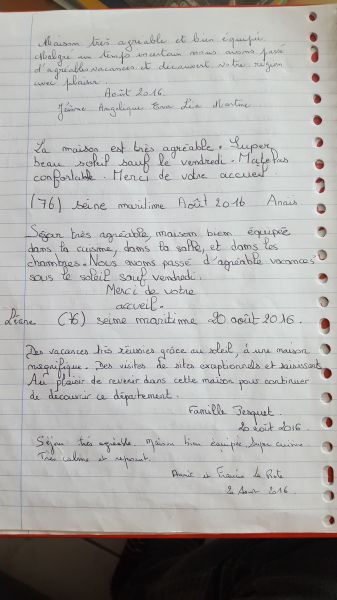 Maison très agréable et bien équipée.
Malgré un temps incertain nous avons passé
d'agréables vacances et découvert votre région
avec plaisir.
Août 2016.
Jérôme Angélique Eva Léa Martine
La maison est très agréable. Super
beau soleil sauf le vendredi. Matelas
confortable. Merci de votre accueil
(76) seine maritime Août 2016 Anaïs
Séjour très agréable, maison bien équipée
dans la cuisine, dans la salle, et dans les
chambres. Nous avons passé d'agréable vacances
sous le soleil sauf vendredi.
Merci de votre
accueil.
Liane (76) seine maritime 20 août 2016.
Des vacances très réussies grâce au soleil, à une maison
magnifique. Des visites de sites exceptionnels et saisissants.
Au plaisir de revenir dans cette maison pour continuer
de découvrir ce département.
Famille
20 août 2016.
Séjour très agréable. Maison bien équipée, super cuisine.
Très calme et reposant.
Annie et Francis
2 Août 2016